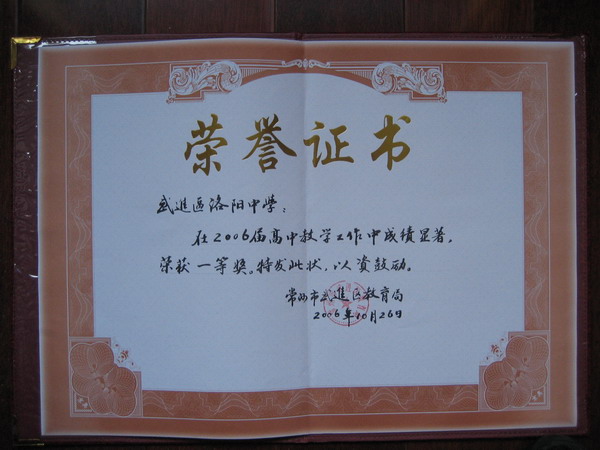 荣誉证书
武進区洛阳中學：
在2006届高中教学工作中成绩显著，
荣获一等奖。特发此状，以资鼓励。
常州市武進区教育局
2006年10月26日